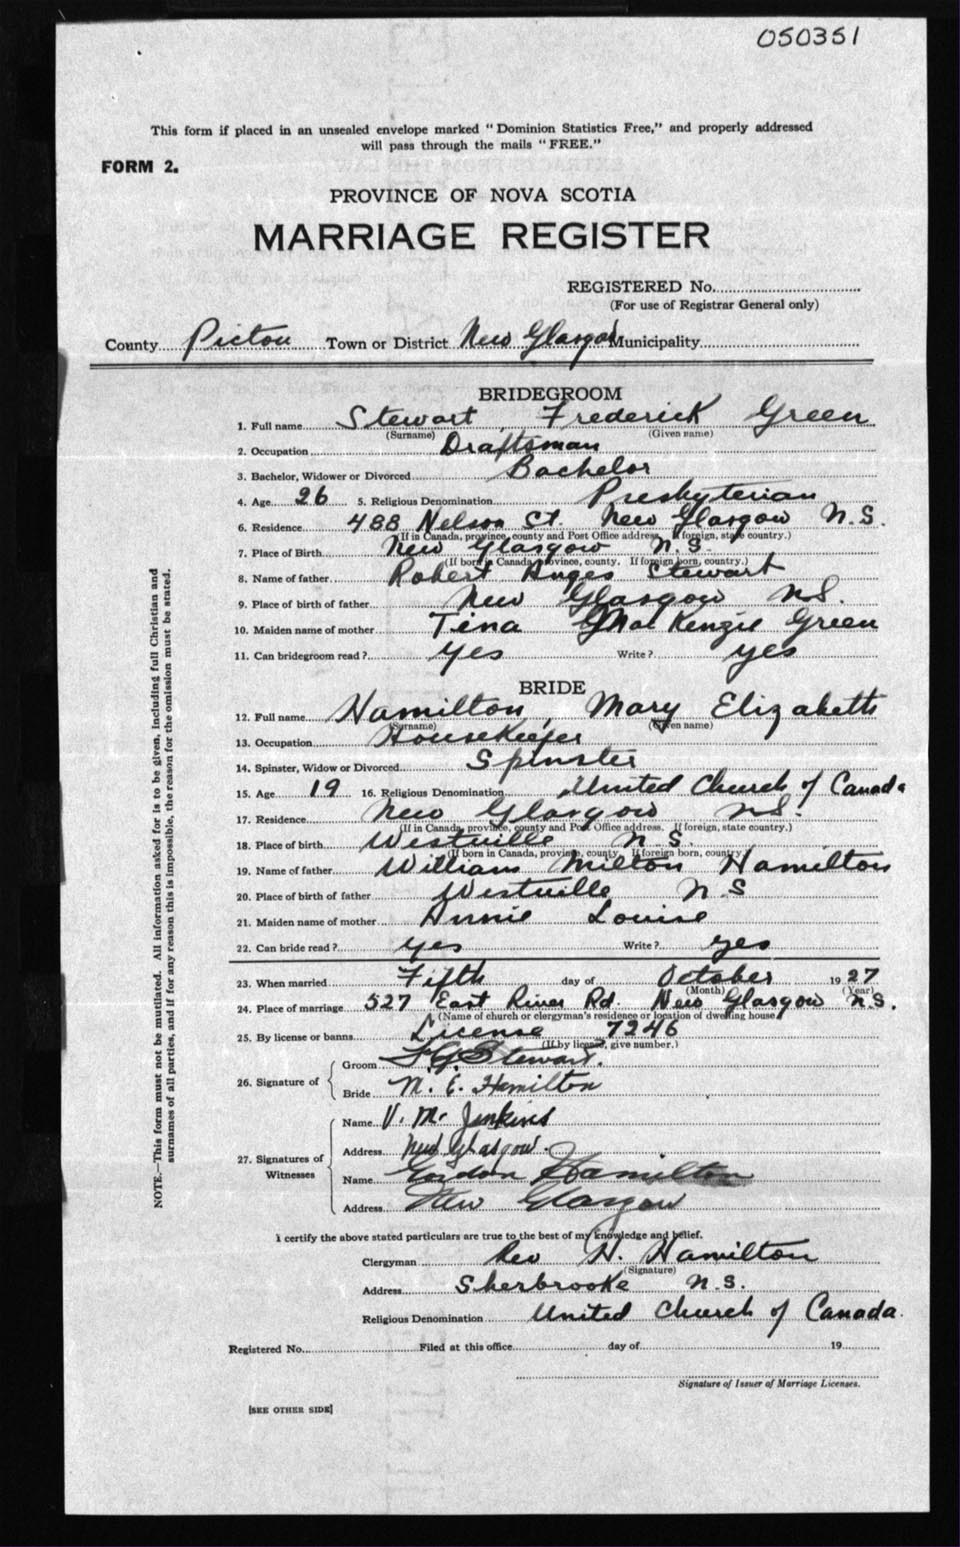 050351
This form if placed in an unsealed envelope marked "Dominion Statistics Free," and properly addressed
will pass through the mails "FREE."
FORM 2.
PROVINCE OF NOVA SCOTIA
MARRIAGE REGISTER
REGISTERED No.
(For use of Registrar General only)
County Pictou Town or District New Glasgow Municipality
BRIDEGROOM
1. Full name Stewart, Frederick Green
(Surname) (Given name)
2. Occupation Draftsman
3. Bachelor, Widower or Divorced Bachelor
4. Age 26 5. Religious Denomination Presbyterian
6. Residence 488 Nelson St. New Glasgow N.S.
(If in Canada, province, county and Post Office address. If foreign, state country.)
7. Place of Birth New Glasgow N.S.
(If born in Canada, province, county. If foreign born, country.)
8. Name of father Robert Anges Stewart
9. Place of birth of father New Glasgow N.S.
10. Maiden name of mother Tina MacKenzie Green
11. Can bridegroom read? yes Write? yes
BRIDE
12. Full name Hamilton, Mary Elizabeth
(Surname) (Given name)
13. Occupation Housekeeper
14. Spinster, Widow or Divorced Spinster
15. Age 19 16. Religious Denomination United Church of Canada
17. Residence New Glasgow N.S.
(If in Canada, province, county and Post Office address. If foreign, state country.)
18. Place of birth Westville N.S.
(If born in Canada, province, county. If foreign born, country.)
19. Name of father William Milton Hamilton
20. Place of birth of father Westville N.S
21. Maiden name of mother Annie Louise
22. Can bride read? yes Write? yes
23. When married Fifth day of October 1927
(Month) (Year)
24. Place of marriage 527 East River Rd. New Glasgow N.S.
(Name of church or clergyman's residence or location of dwelling house)
25. By license or banns License 7246
(If by license, give number.)
26. Signature of
Groom F.G. Stewart.
Bride M. E. Hamilton
27. Signatures of Witnesses
Name V. M. Jenkins
Address New Glasgow.
Name Gordon Hamilton
Address New Glasgow
I certify the above stated particulars are true to the best of my knowledge and belief.
Clergyman Rev H. Hamilton
(Signature)
Address Sherbrooke N.S.
Religious Denomination United Church of Canada.
Registered No. Filed at this office day of 19
Signature of Issuer of Marriage Licenses.
[SEE OTHER SIDE]
NOTE.—This form must not be mutilated. All information asked for is to be given, including full Christian and
surnames of all parties, and if for any reason this is impossible, the reason for the omission must be stated.